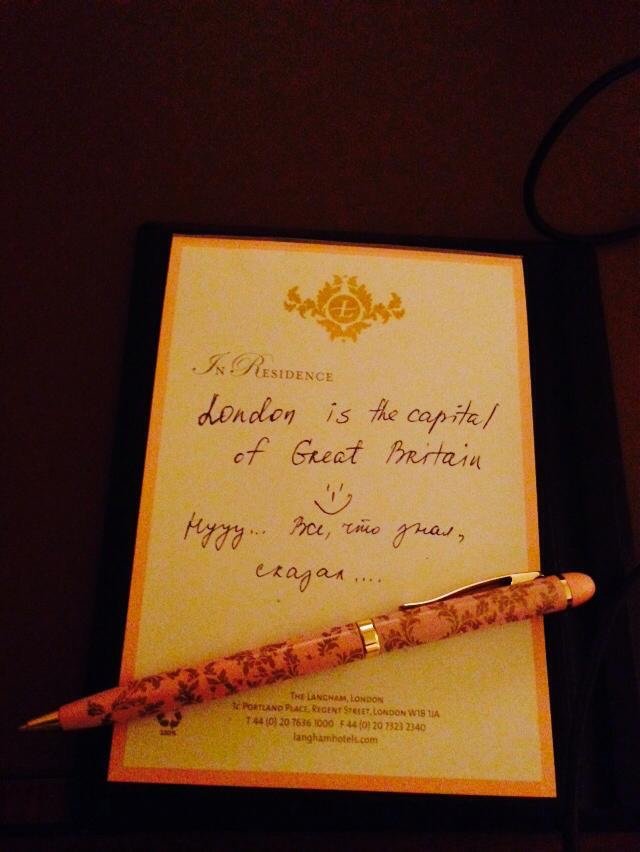 In Residence
London is the capital
of Great Britain
Нууу... Все, что знал,
сказал....
The Langham, London
1c Portland Place, Regent Street, London W1B 1JA
T 44 (0) 20 7636 1000 F 44 (0) 20 7323 2340
langhamhotels.com
100%